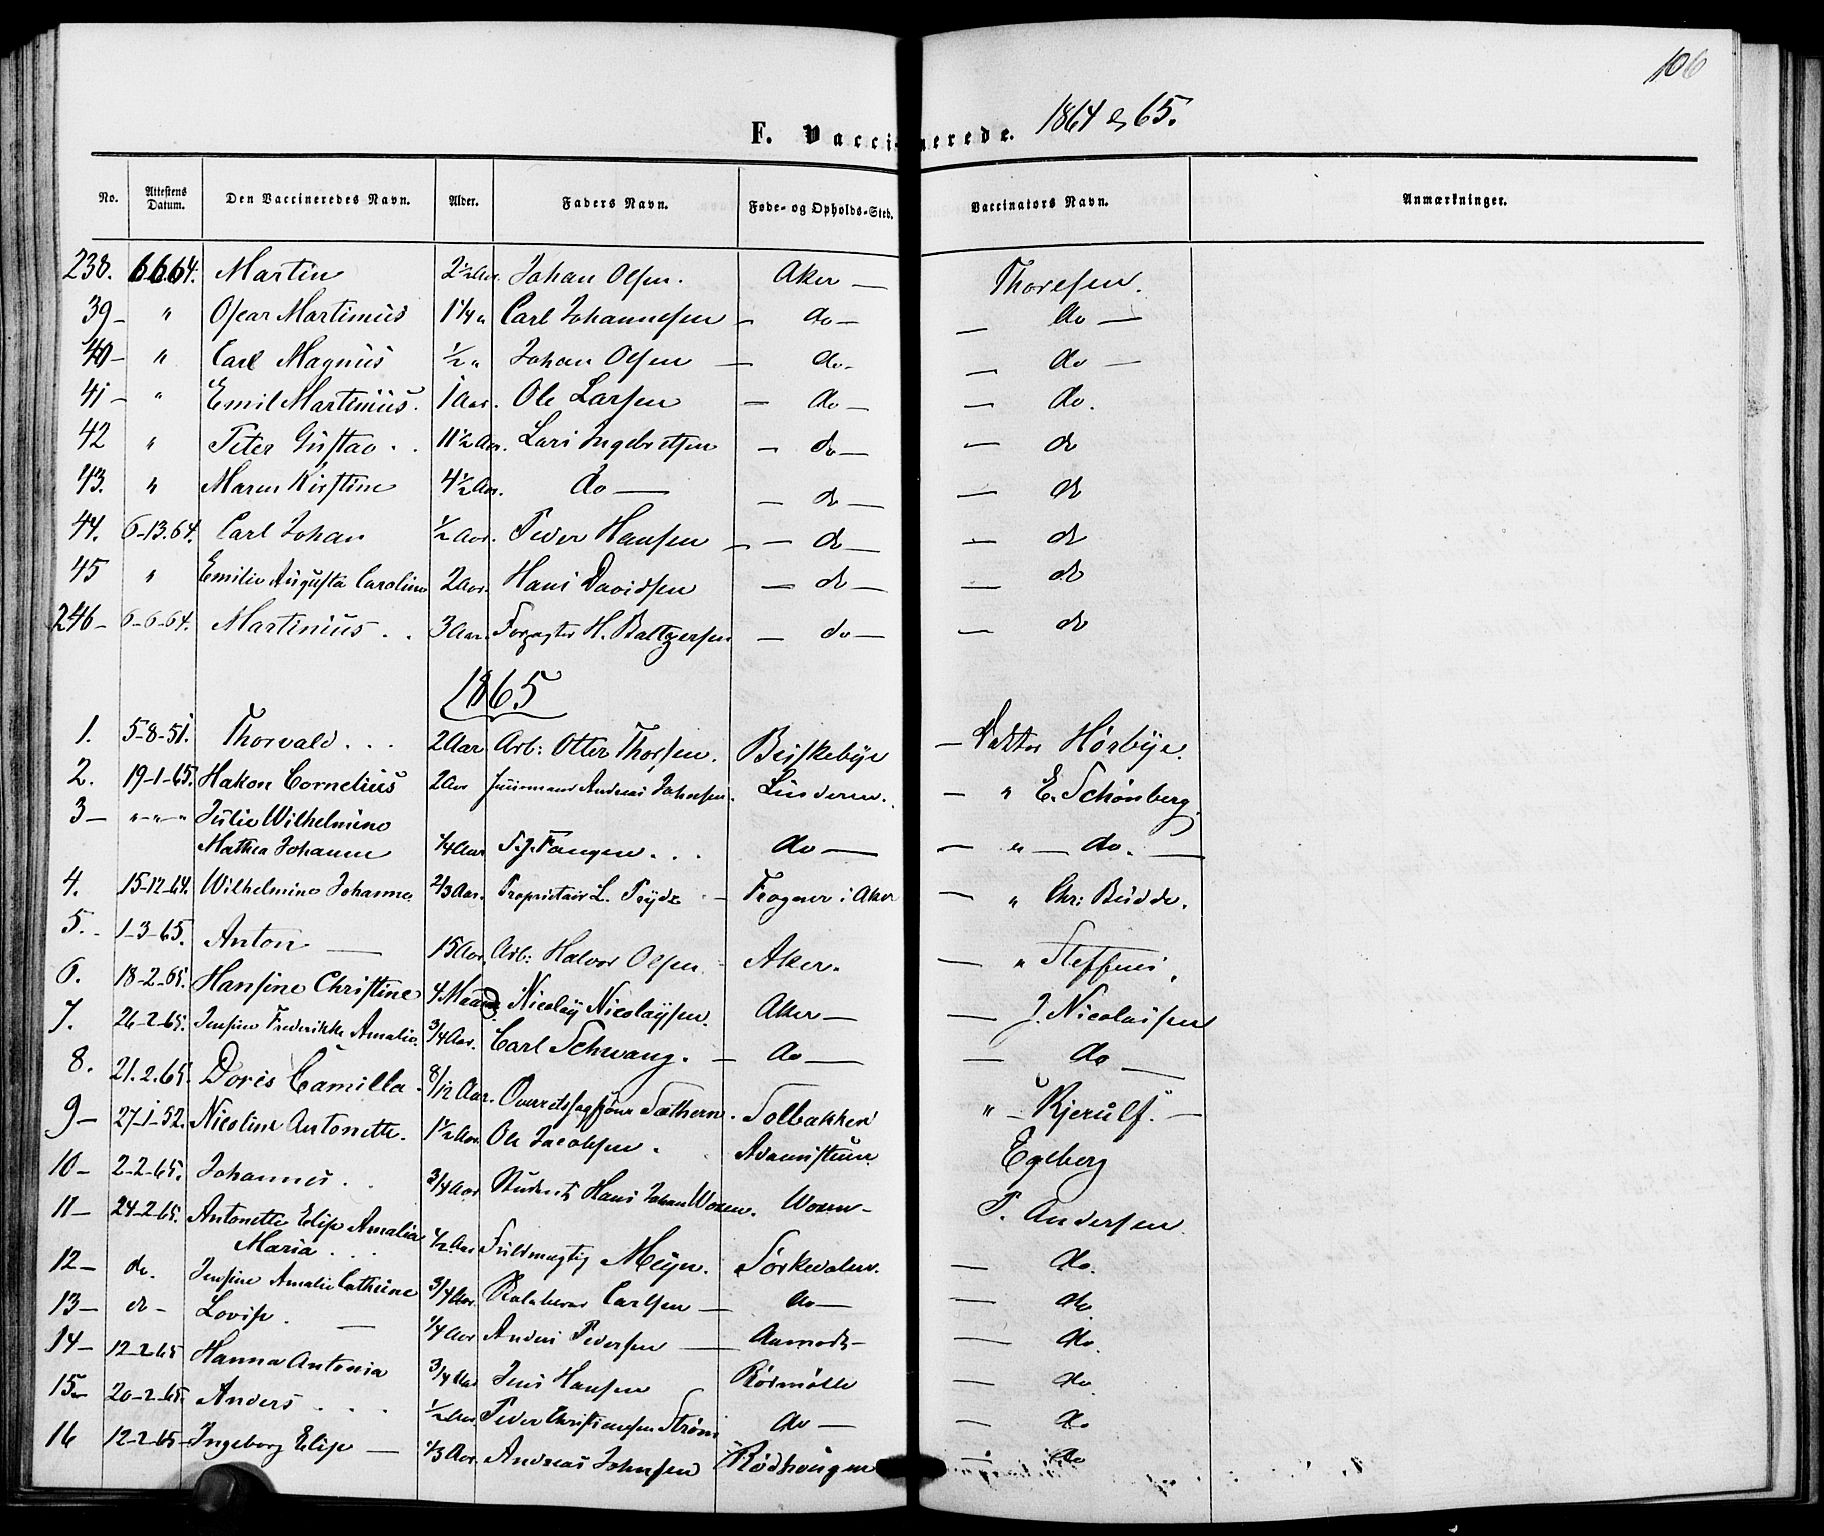 106
F. Vaccinerede. 1864 & 65.
No. Attestens Datum. Den Vaccineredes Navn. Alder. Faders Navn. Føde- og Opholds-Sted. Vaccinators Navn. Anmærkninger.
238. 6.6.64. Martin 2½ Aar. Johan Olsen. Aker — Thoresen.
39 — " Oscar Martinius 1¼ " Carl Johannesen — do — — do —
40 — " Carl Magnus ½ " Johan Olsen — do — — do —
41 — " Emil Martinius. 1 Aar. Ole Larsen — do — — do.
42 " Peter Gustav . . 11½ Aar. Lars Ingebretsen — do — — do
43. " Maren Kirstine 4½ Aar. do — — do — — do
44. 6-13.64. Carl Johan ½ Aar. Peder Hansen — — do — — do
45 " Emilie Augusta Caroline 2 Aar. Hans Davidsen — do — — do
246 — 6-6-64. Martinius . . 3 Aar. Forpagter H. Baltzersen — do — — do
1865
1. 5-8-51. Thorvald . . . 2 Aar Arb: Otter Thorsen. Briskebye — Doktor Hørbye.
2. 19-1-65. Hakon Cornelius 2 Aar Huusmand Andreas Johnsen. Lindern. — " E. Schønberg.
3 — " - " - " Julie Wilhelmine
Mathea Johanne ¼ Aar F. J. Fangen . . . do — — " — do. —
4. 15-12-64. Wilhelmine Johanne. 2/3 Aar. Proprietair L. Frydz — Frogner i Aker — " Chr: Budde.
5. - 1-3-65. Anton — 15 Aar. Arb: Halvor Olsen — Aker. — " Steffens.
6. 18-2-65. Hansine Christine 4 Maand. Nicolay Nicolaysen. Aker — — J. Nicolaisen
7. 26-2-65. Jensine Frederikke Amalie. ¾ Aar. Carl Schwang. — do — — do —
8. 21.2.65. Doris Camilla. 8/12 Aar. Overretssagfører Sæthern. Solbakken " — Kjerulf. —
9 — 27-1-52. Nicoline Antonette. 1½ Aar. Ole Jacobsen. Adamstuen. Egeberg
10 — 2-2-65. Johannes . . ¾ Aar Student Hans Johan Woxen. Woxen — P. Andersen
11 — 24-2-65. Antonette Elise Amalia
Maria . . . ½ Aar Fuldmægtig Meyer. Sørkedalen. — do.
12 — do. Jensine Amalie Cathrine ¾ Aar. Carlsen — do — — do
13 — do — Lovise. — ¼ Aar Anders Pedersen — Aamodt — — do.
14 — 12-2-65 Hanna Antonia ¾ Aar Jens Hansen Rødmølle — do
15 — 20-2-65. Anders . . . ½ Aar. Peder Christiansen Strøm do — — do
16 12-2-65 — Ingeborg Elise — 1/3 Aar. Andreas Johnsen Rødhougen — do